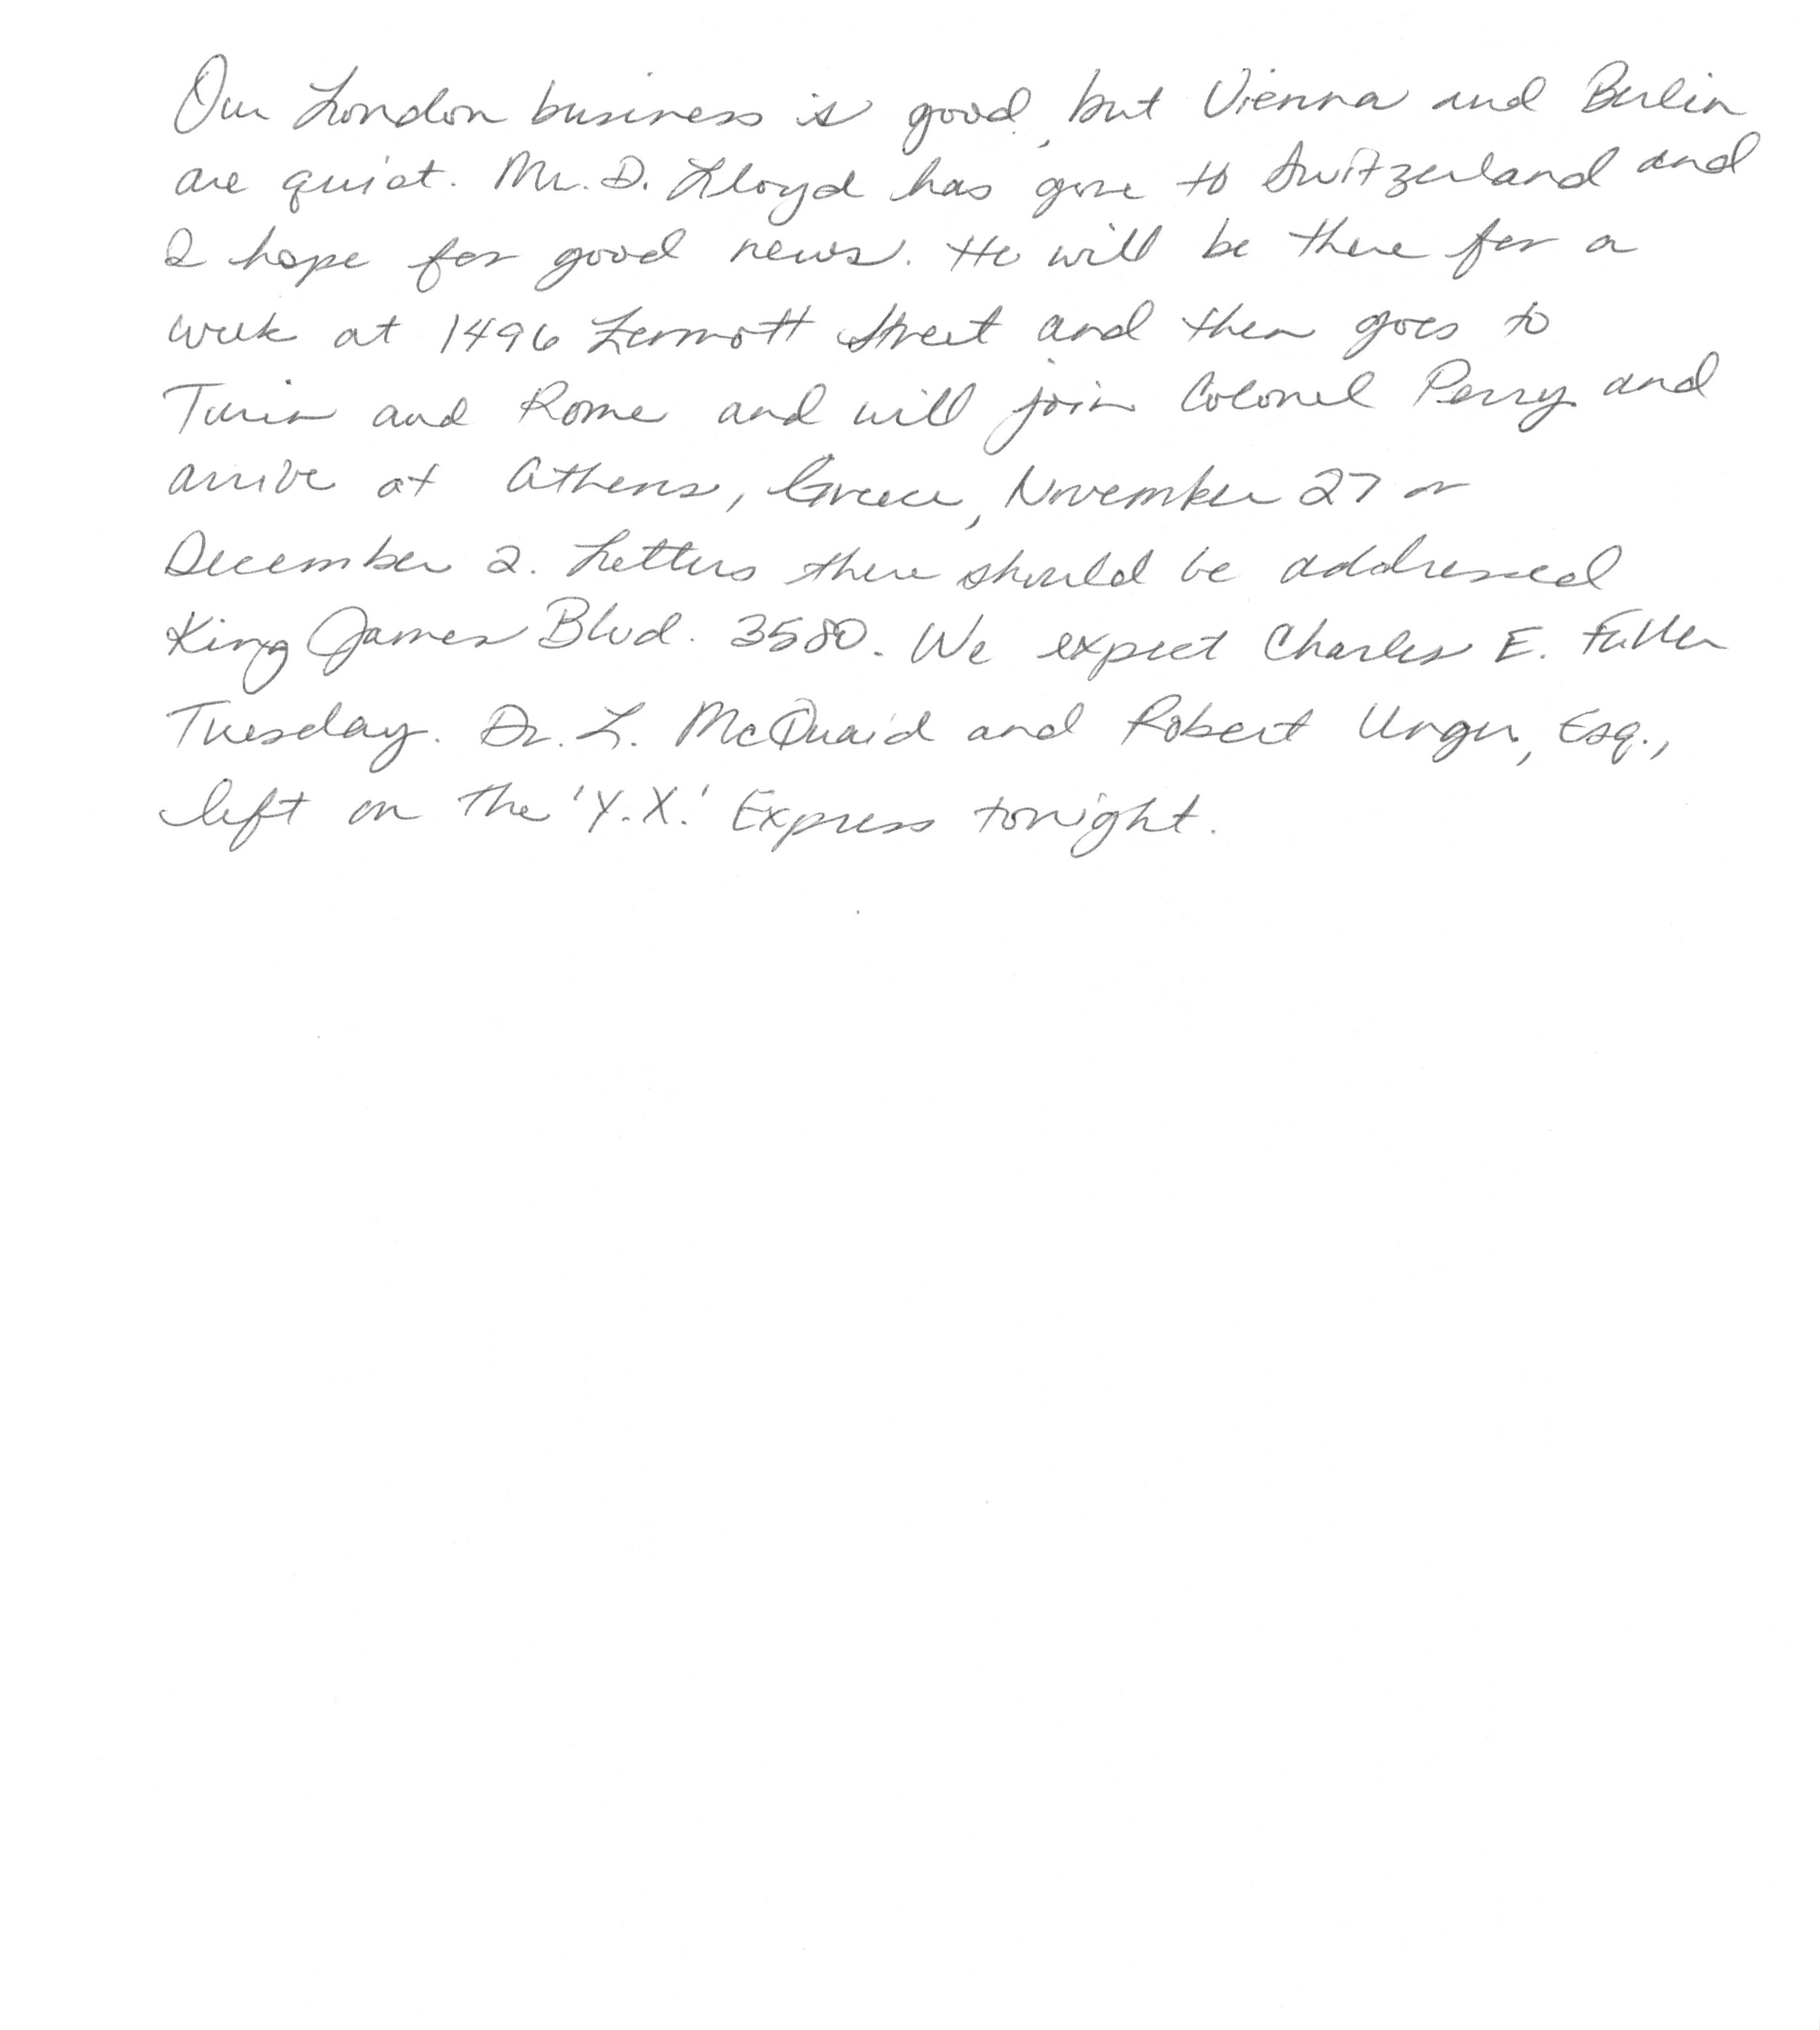 Our London business is good, but Vienna and Berlin
are quiet. Mr. D. Lloyd has gone to Switzerland and
I hope for good news. He will be there for a
week at 1496 Zermott Street and then goes to
Turin and Rome and will join Colonel Perry and
arrive at Athens, Greece, November 27 or
December 2. Letters there should be addressed
King James Blvd. 3580. We expect Charles E. Fuller
Tuesday. Dr. L. McQuaid and Robert Unger, Esq.,
left on the 'Y.X.' Express tonight.